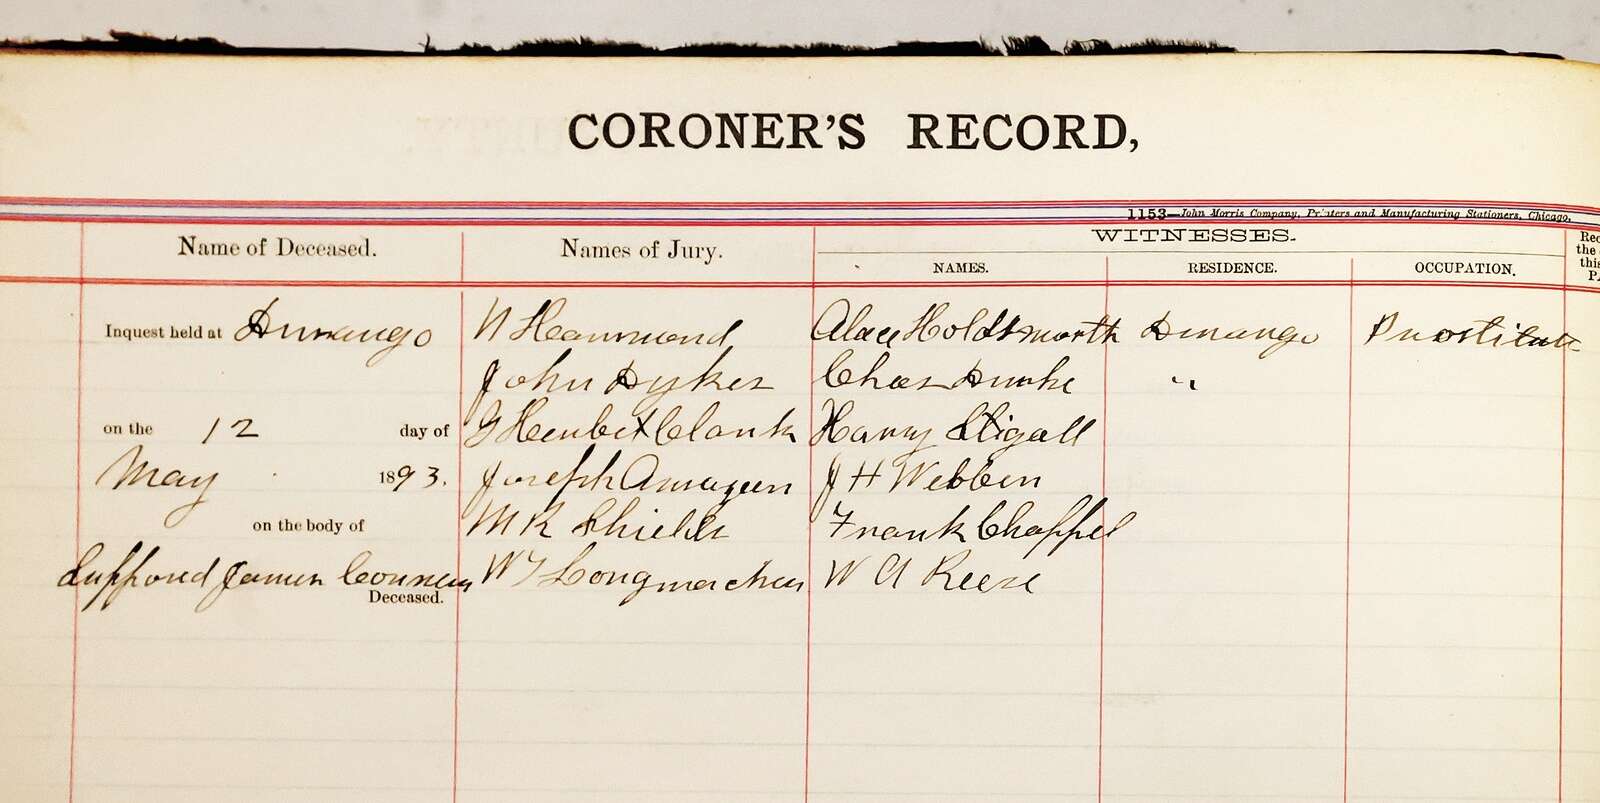 CORONER'S RECORD,
1153—John Morris Company, Printers and Manufacturing Stationers, Chicago.
Name of Deceased. Names of Jury. WITNESSES. Rec
NAMES. RESIDENCE. OCCUPATION. the
this
P
Inquest held at Durango N Hammond Alace Holdsworth Durango Prostitute
John Dyker Chas Burke "
on the 12 day of G Herbert Clark Harry Stigall
May 1893. Joseph Amugeen J H Webben
on the body of M R Shields Frank Chappel
Supposed James Conners W T Longmacher W A Reese
Deceased.